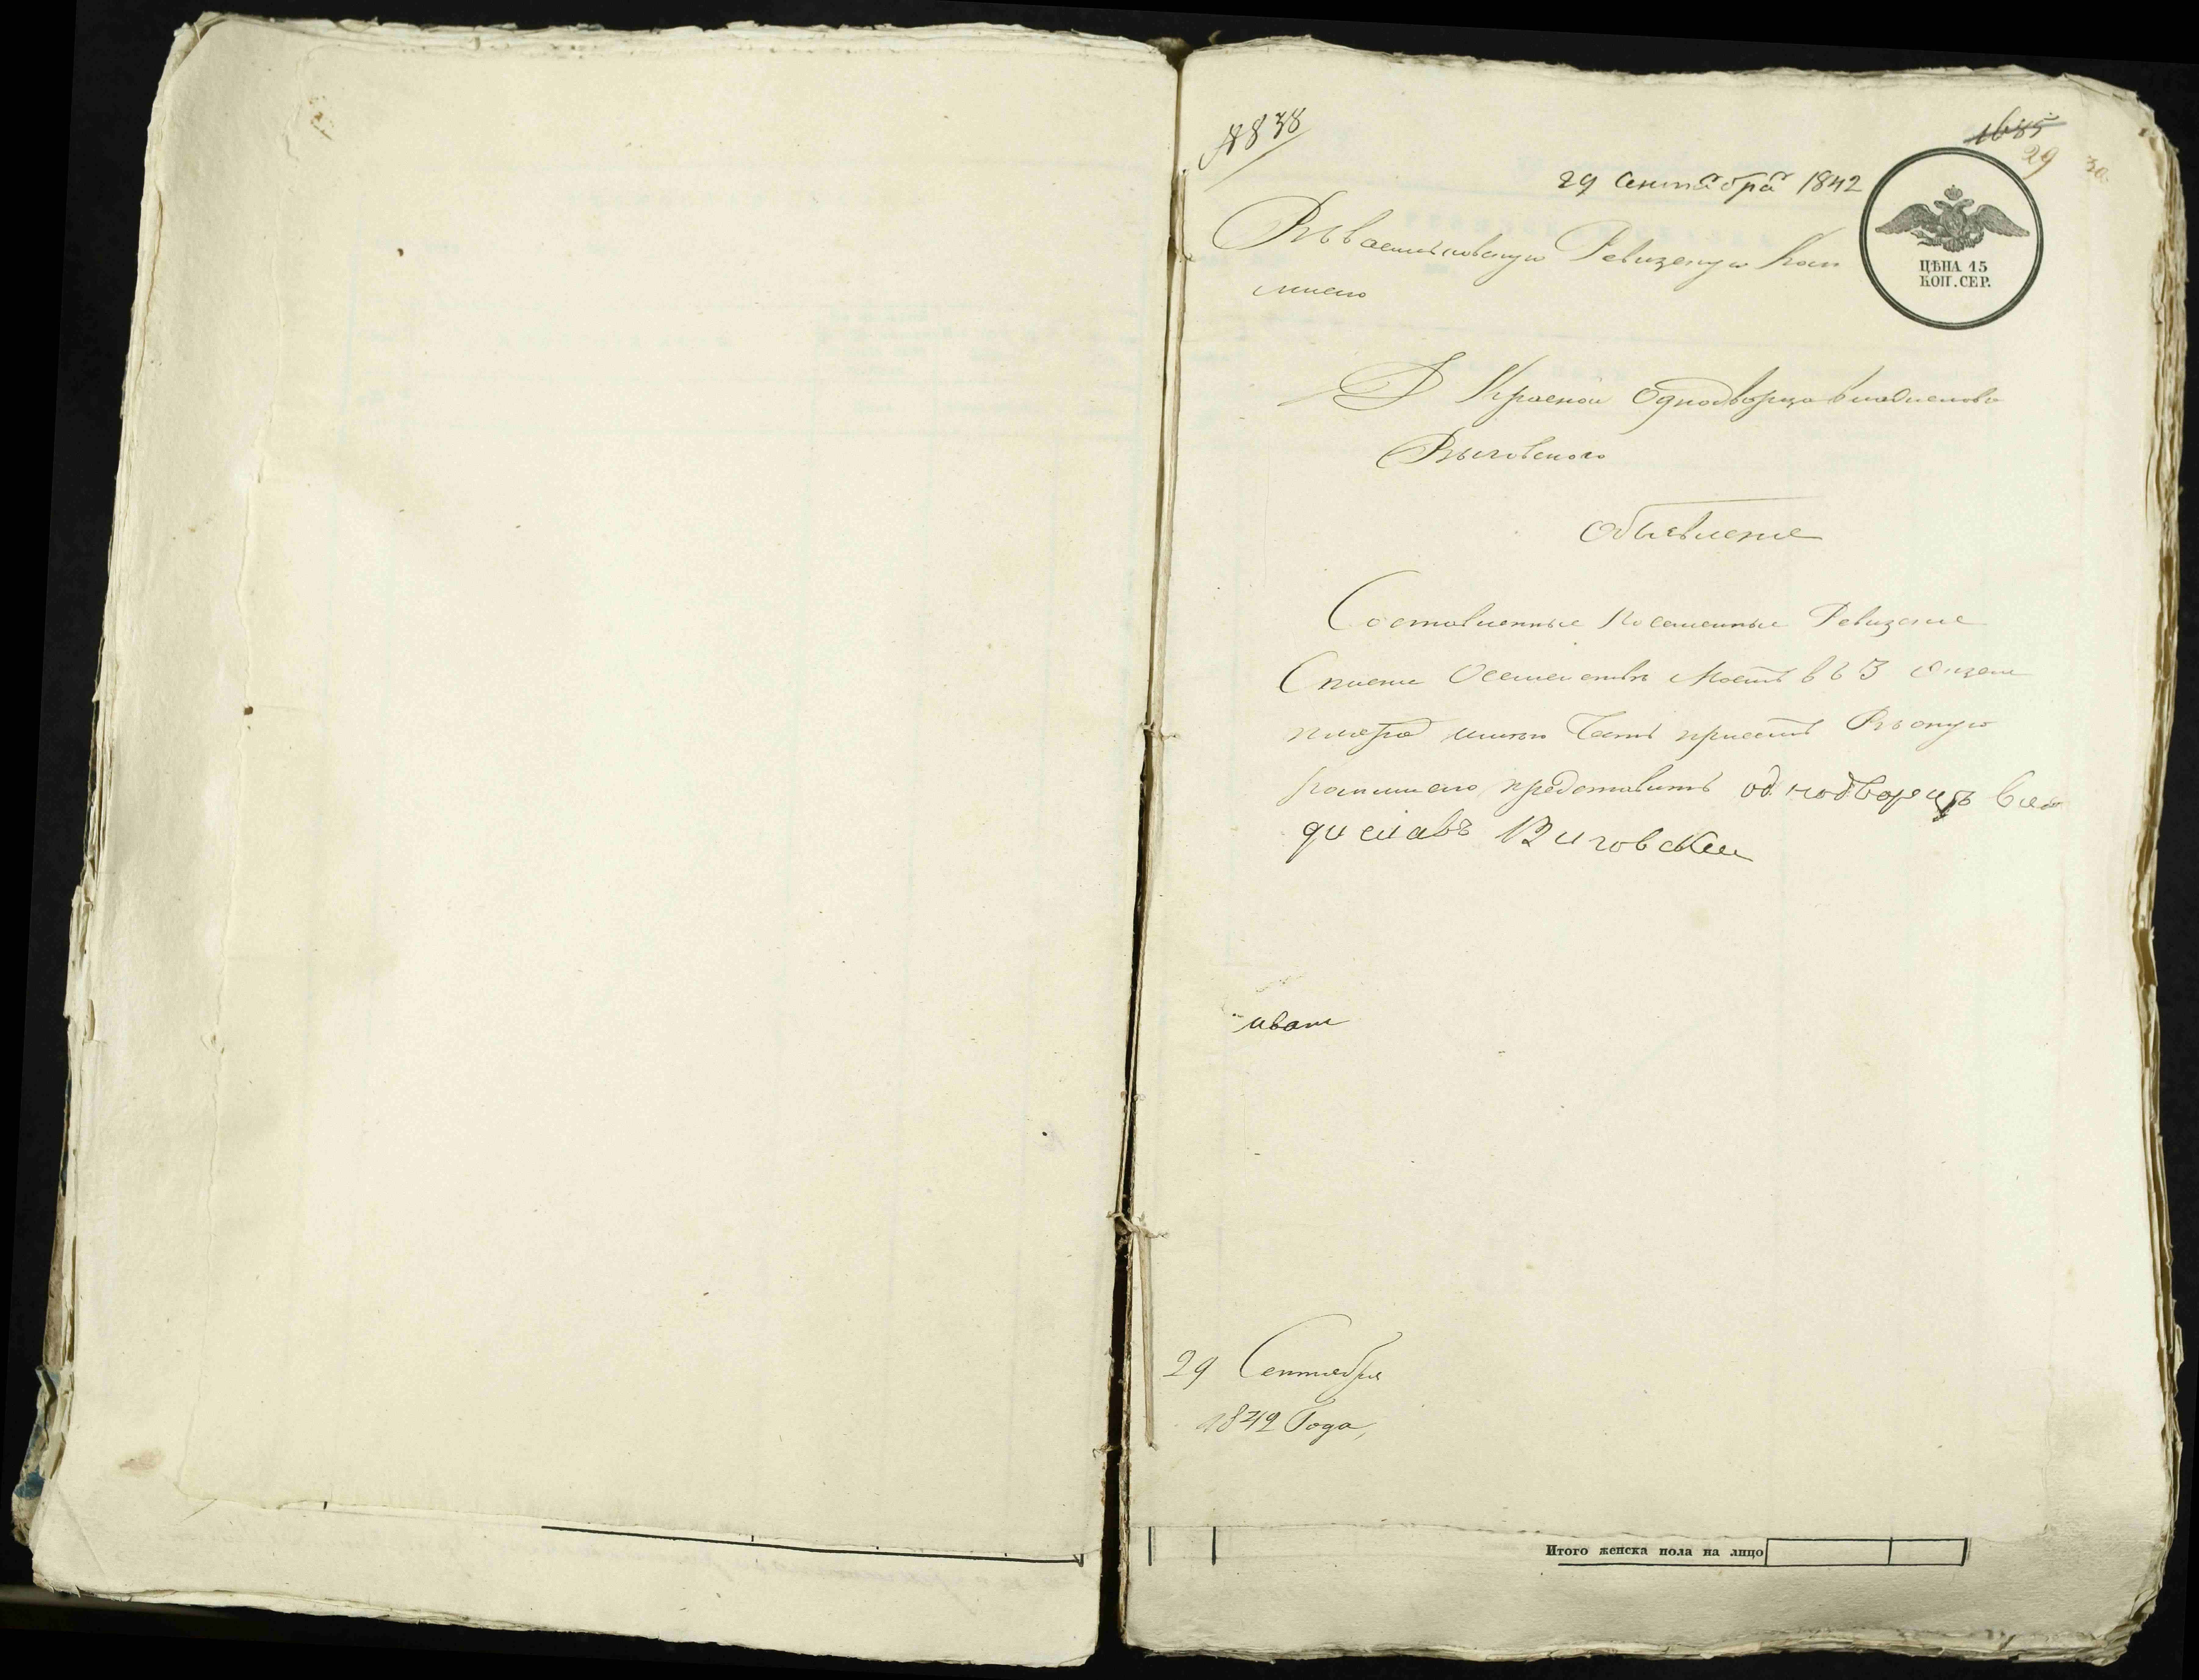 №838
1685
29
30
29 Сентября 1842
ЦѢНА 15
КОП. СЕР.
Въ Васильковскую Ревизскую Ком
мисию
Д Красной Однодворца Владислава
Выговского
Объявление
Составленные Посемейные Ревизские
Списки Осемействѣ Моемъ въ 3
имею Честь при семъ Въ оную
коммисию представить однодворецъ Вла
диславъ Виговскии
29 Сентября
1842 Года,
Итого женска пола на лицо